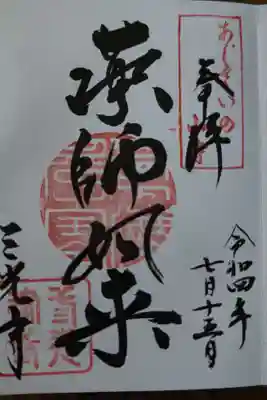 あじさいの寺
奉拝
令和四年
七月十五日
薬師如来
三光寺